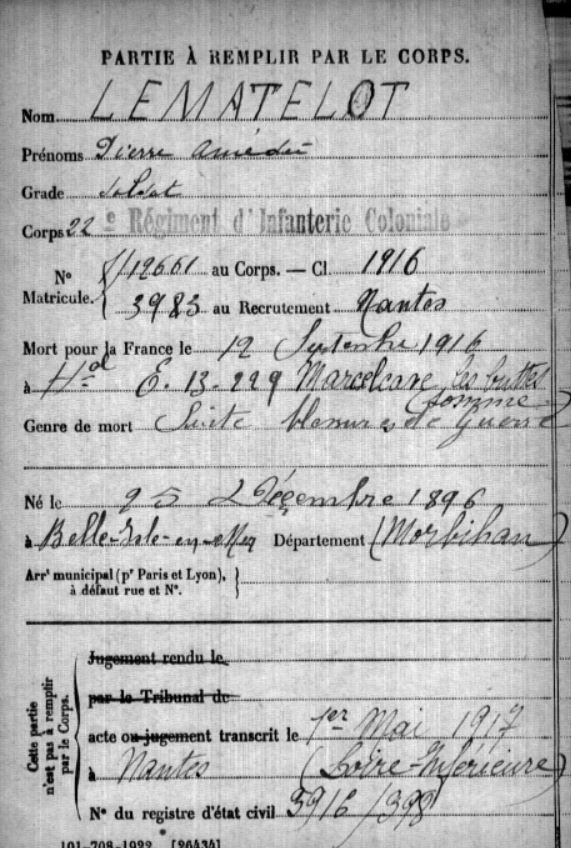 PARTIE À REMPLIR PAR LE CORPS.
Nom LEMATELOT
Prénoms Pierre Amédée
Grade Soldat
Corps 22e Régiment d'Infanterie Coloniale
N° Matricule. 12661 au Corps. — Cl. 1916
3983 au Recrutement Nantes
Mort pour la France le 12 Septembre 1916
à Hal E. 13-229 Marcelcave les buttes
(Somme)
Genre de mort Suite blessures de Guerre
Né le 25 Décembre 1896
à Belle-Isle-en-Mer Département (Morbihan)
Arrt municipal (pr Paris et Lyon),
à défaut rue et N°.
Cette partie
n'est pas à remplir
par le Corps.
Jugement rendu le
par le Tribunal de
acte ou jugement transcrit le 1er Mai 1917
à Nantes (Loire-Inférieure)
N° du registre d'état civil 3916/398
101-708-1922. [26434]